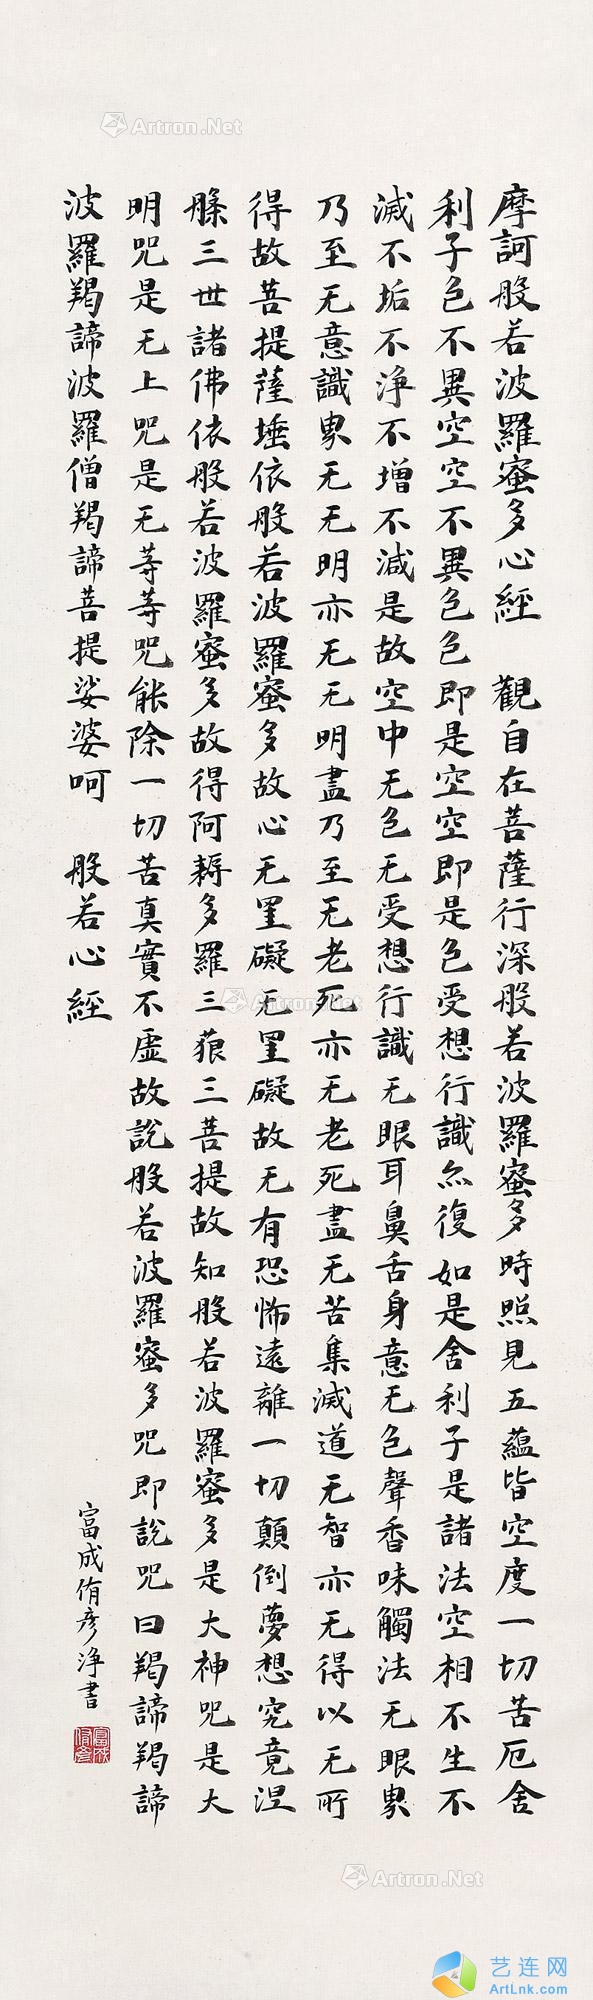 摩訶般若波羅蜜多心經　觀自在菩薩行深般若波羅蜜多時照見五蘊皆空度一切苦厄舍
利子色不異空空不異色色即是空空即是色受想行識亦復如是舍利子是諸法空相不生不
滅不垢不淨不增不減是故空中无色无受想行識无眼耳鼻舌身意无色聲香味觸法无眼界
乃至无意識界无无明亦无无明盡乃至无老死亦无老死盡无苦集滅道无智亦无得以无所
得故菩提薩埵依般若波羅蜜多故心无罣礙无罣礙故无有恐怖遠離一切顛倒夢想究竟涅
槃三世諸佛依般若波羅蜜多故得阿耨多羅三藐三菩提故知般若波羅蜜多是大神咒是大
明咒是无上咒是无等等咒能除一切苦真實不虛故說般若波羅蜜多咒即說咒曰羯諦羯諦
波羅羯諦波羅僧羯諦菩提娑婆呵　般若心經
富成侑彥淨書
Artron.Net
Artron.Net
Artron.Net
Artron.Net
艺连网
ArtLnk.com